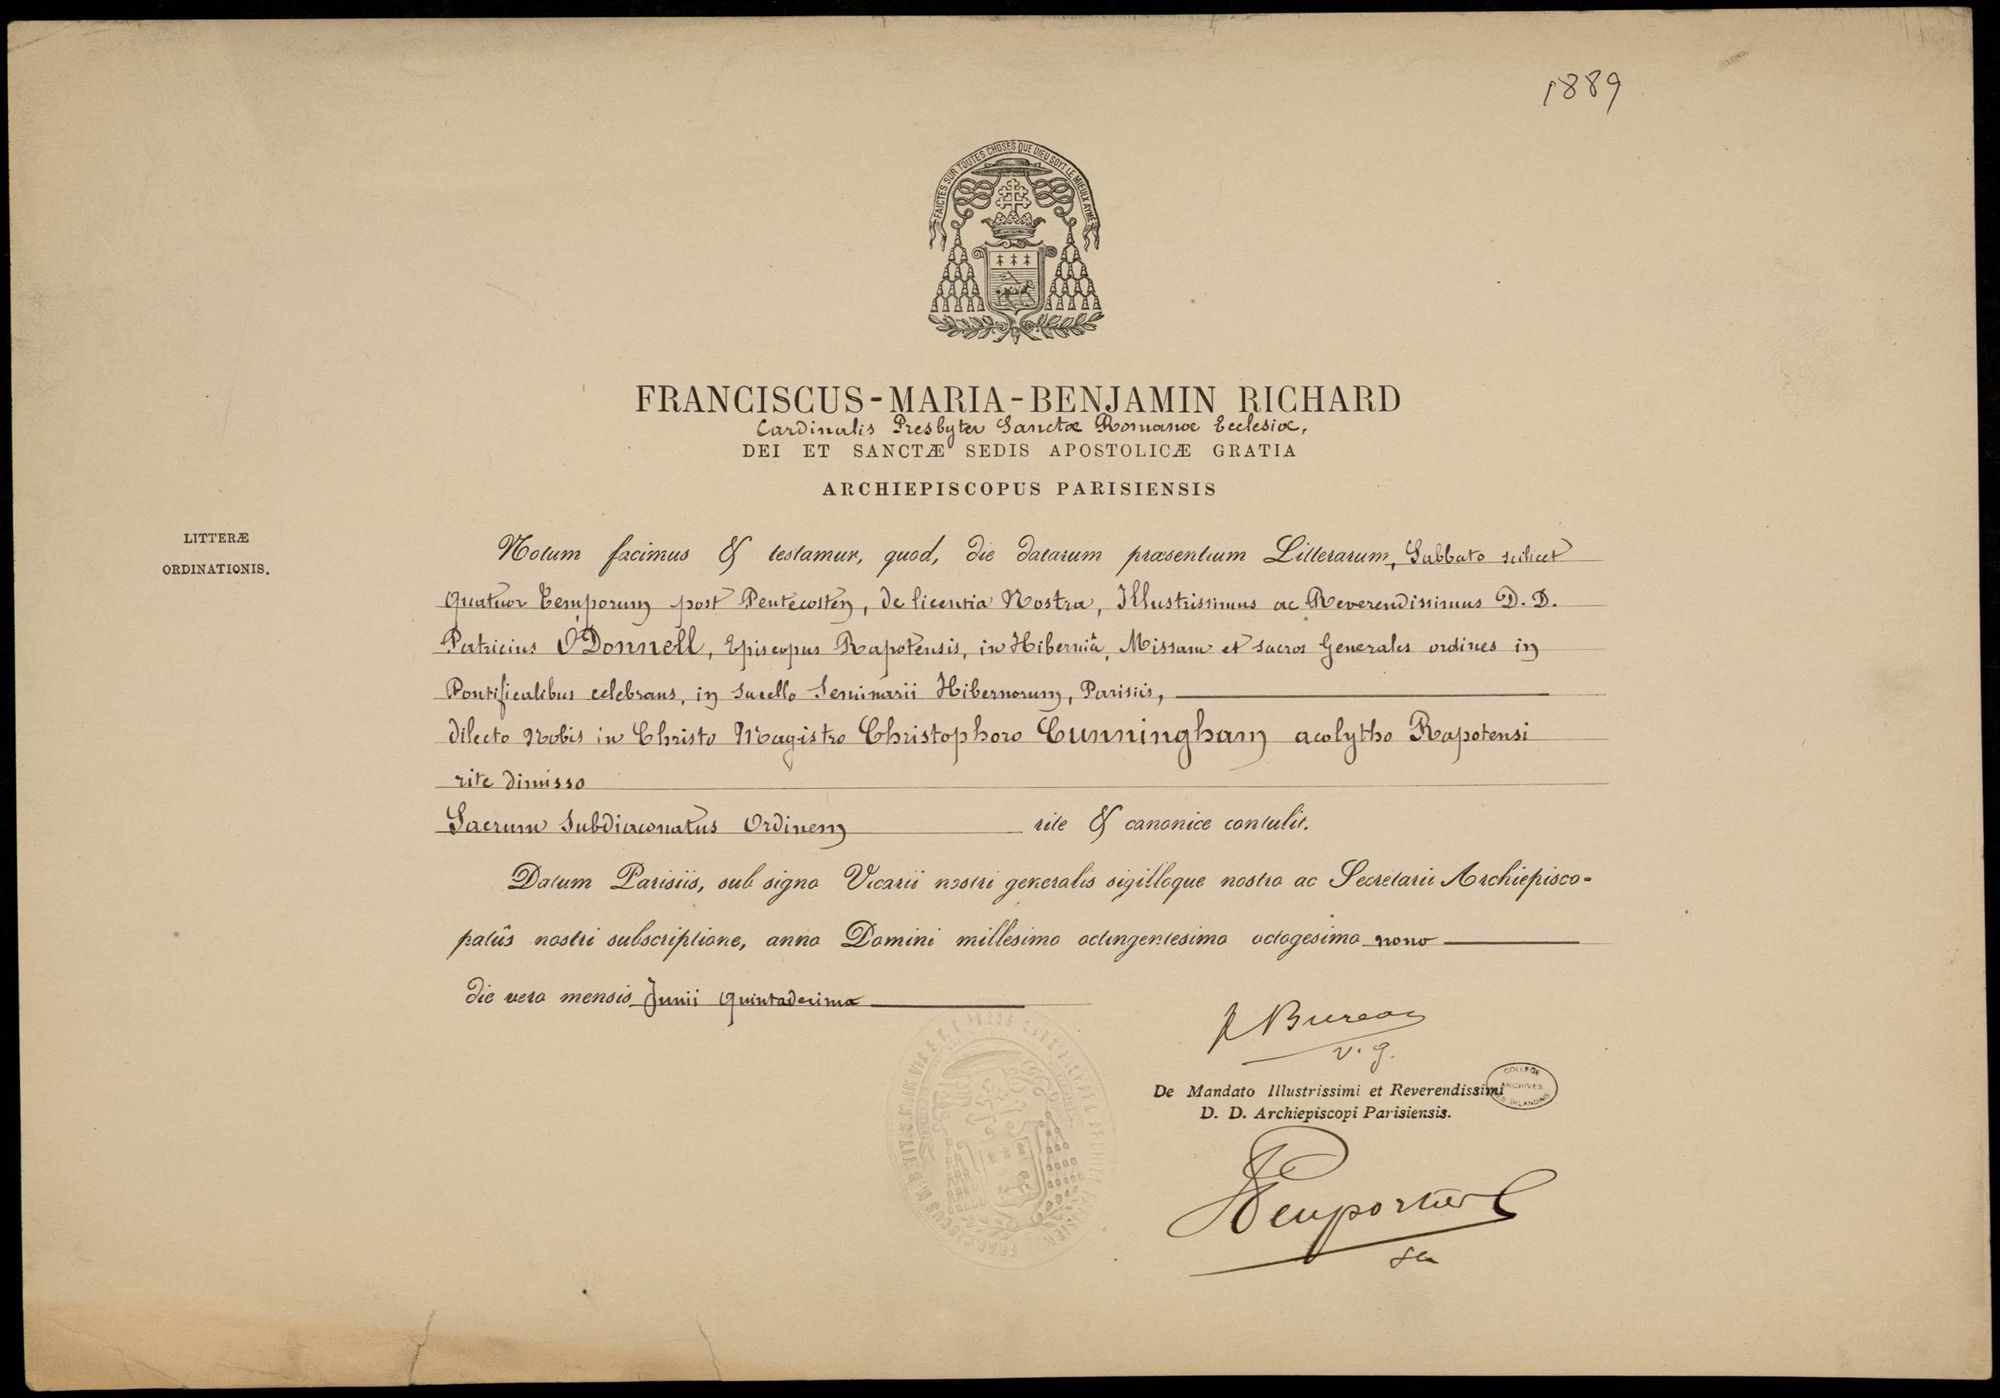 1889
FAICTES SUR TOUTES CHOSES QUE DIEU SOYT LE MIEULX AYMÉ
FRANCISCUS-MARIA-BENJAMIN RICHARD
Cardinalis Presbyter Sanctæ Romanæ Ecclesiæ,
DEI ET SANCTÆ SEDIS APOSTOLICÆ GRATIA
ARCHIEPISCOPUS PARISIENSIS
LITTERÆ
ORDINATIONIS.
Notum facimus & testamur, quod, die datarum præsentium Litterarum, Sabbato scilicet
Quatuor Temporum post Pentecosten, de licentia Nostra, Illustrissimus ac Reverendissimus D. D.
Patricius O'Donnell, Episcopus Rapotensis, in Hiberniâ, Missam et sacros Generales ordines in
Pontificalibus celebrans, in sacello Seminarii Hibernorum, Parisiis,
dilecto Nobis in Christo Magistro Christophoro Cunningham acolytho Rapotensi
rite dimisso
Sacrum Subdiaconatus Ordinem rite & canonice contulit.
Datum Parisiis, sub signo Vicarii nostri generalis sigilloque nostro ac Secretarii Archiepisco-
patûs nostri subscriptione, anno Domini millesimo octingentesimo octogesimo nono
die vero mensis Junii quintadecima
Bureau
v. g.
De Mandato Illustrissimi et Reverendissimi
D. D. Archiepiscopi Parisiensis.
COLLEGE
ARCHIVES
IRLANDAIS